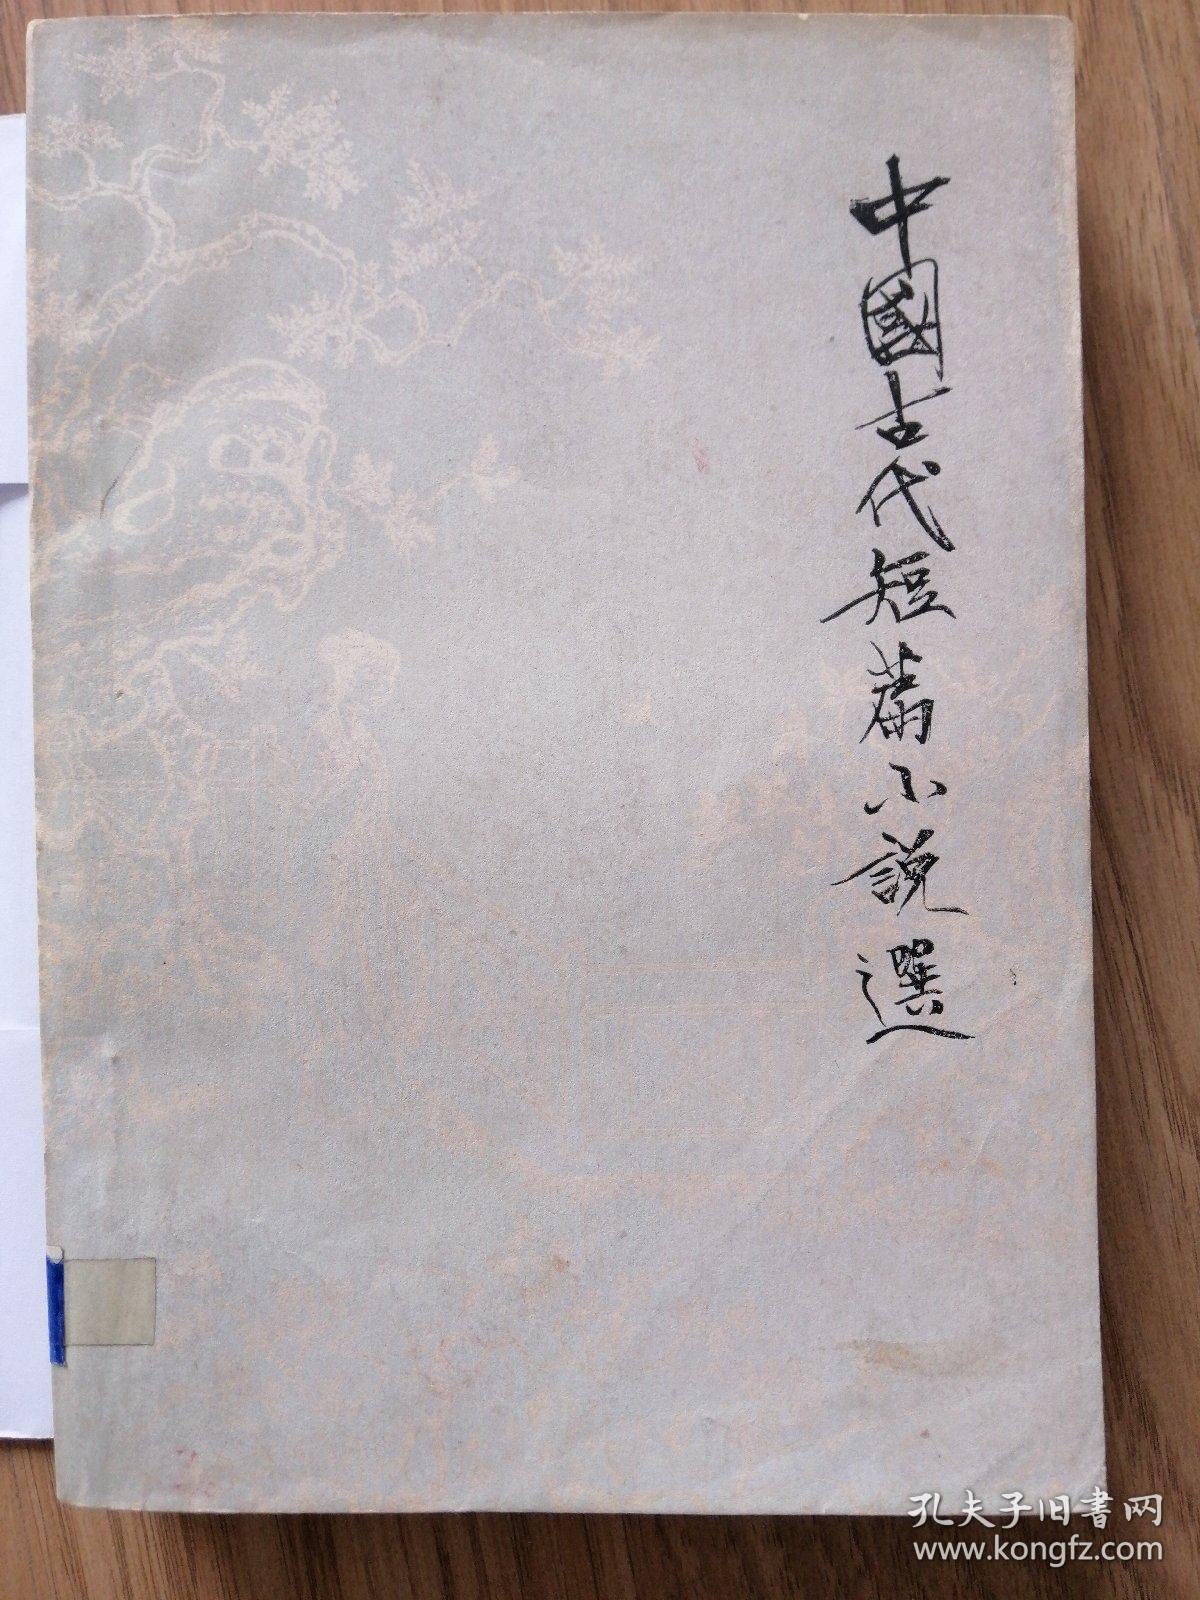 中國古代短篇小說選
孔夫子旧書网
www.kongfz.com